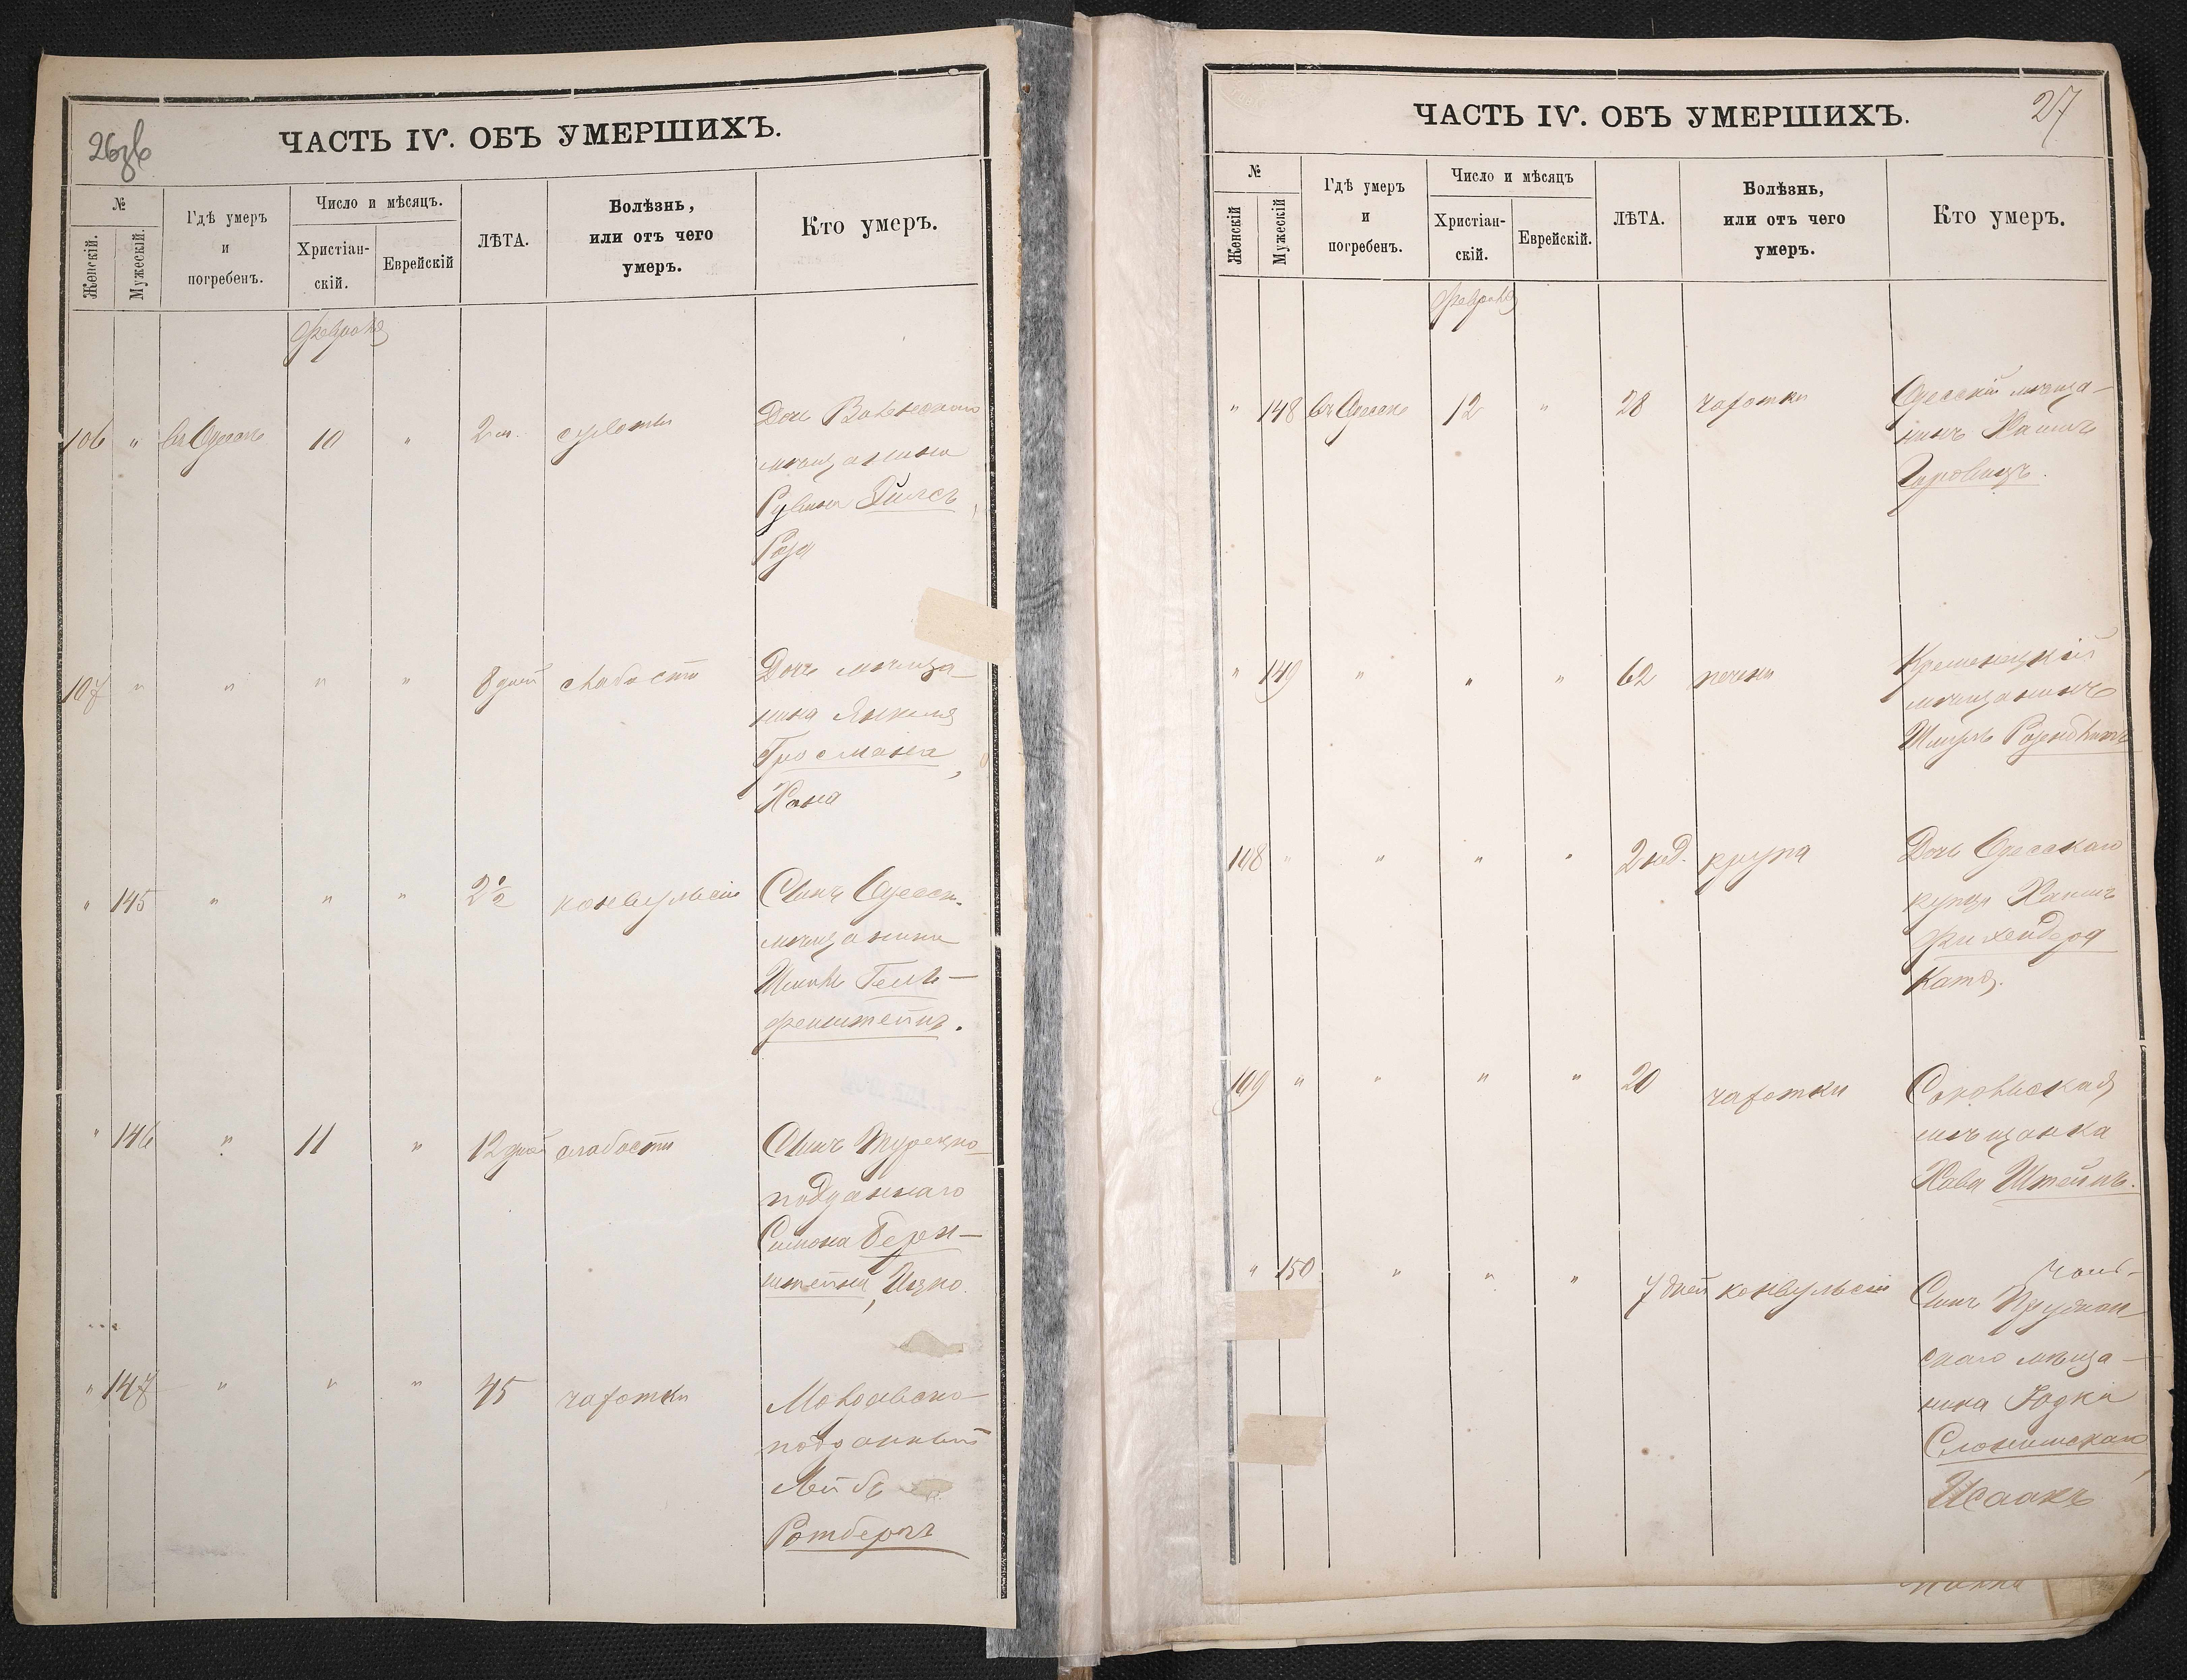 26зв
ЧАСТЬ IV. ОБЪ УМЕРШИХЪ.
№
Женскій.
Мужескій.
Гдѣ умеръ
и
погребенъ.
Число и мѣсяцъ.
Христіан-
скій.
Еврейскій
ЛѢТА.
Болѣзнь,
или отъ чего
умеръ.
Кто умеръ.
Февраля
106 " въ Одессѣ 10 " 2 м.
Дочь
мѣщанина
Рувина
Роза
107 " " " " 8 дней слабости
Дочь мѣща-
нина Янкеля
Гросмана,
Хана
" 145 " " " 2½ конвульсіи
Сынъ Одесск.
мѣщанина
Гель-
фенштейнъ.
" 146 " 11 " 12 дней слабости
Сынъ Турецко-
подданнаго
Симона Берен-
штейна, Ицко.
" 147 " " " 45 чахотки
Молдавско-
подданный
Лейбъ
Ротбергъ
27
ЧАСТЬ IV. ОБЪ УМЕРШИХЪ.
№
Женскій
Мужескій
Гдѣ умеръ
и
погребенъ.
Число и мѣсяцъ
Христіан-
скій.
Еврейскій.
ЛѢТА.
Болѣзнь,
или отъ чего
умеръ.
Кто умеръ.
Февраля
" 148 въ Одессѣ 12 " 28 чахотки
Одесскій мѣща-
нинъ Хаимъ
Гуровицъ.
" 149 " " " 62 печени
Кременецкій
мѣщанинъ
Розенблитъ
108 " " " " 2 нед. крупа
Дочь Одесскаго
купца Хаима
Фихендера
109 " " " " 20 чахотки
мѣщанка
Хава Штейнъ.
" 150 " " " 7 дней конвульсіи
Сынъ
скаго мѣща-
нина
Слонимскаго,
Исаакъ